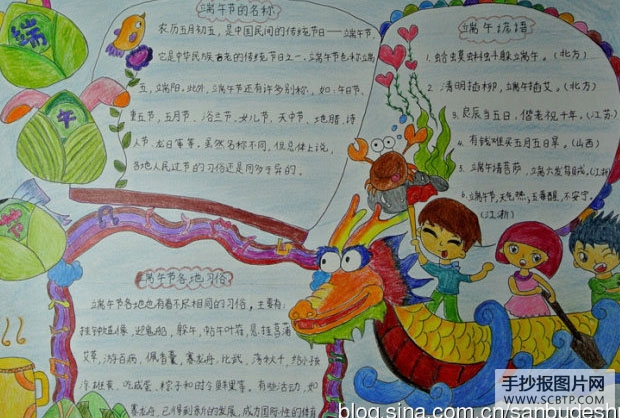 端
午
节
端午节的名称
农历五月初五，是中国民间的传统节日——端午节，
它是中华民族古老的传统节日之一。端午节也称端
五，端阳。此外，端午节还有许多别称，如：午日节、
重五节，五月节，浴兰节，女儿节，天中节，地腊，诗
人节，龙日等等。虽然名称不同，但总体上说，
各地人民过节的习俗还是同多于异的。
端午谚语
1. 蛤蟆蝌蚪躲端午。（北方）
2. 清明插柳，端午插艾。（北方）
3. 良辰当五日，偕老祝千年。（江苏）
4. 有钱难买五月五日旱。（山西）
5. 端午请菩萨，端六发乌贼。（江浙）
6. 端午节，天气热；五毒醒，不安宁。
（江浙）
端午节各地习俗
端午节各地也有着不尽相同的习俗，主要有：
挂钟馗像，迎鬼船，躲午，帖午叶符，悬挂菖蒲
艾草，游百病，佩香囊，赛龙舟，比武，荡秋千，给小孩
涂雄黄，吃咸蛋，粽子和时令鲜果等。有些活动，如
赛龙舟，已得到新的发展，成为国际性的体育
手抄报图片网
WWW.SCBTP.COM
blog.sina.com.cn/sanbudeshi